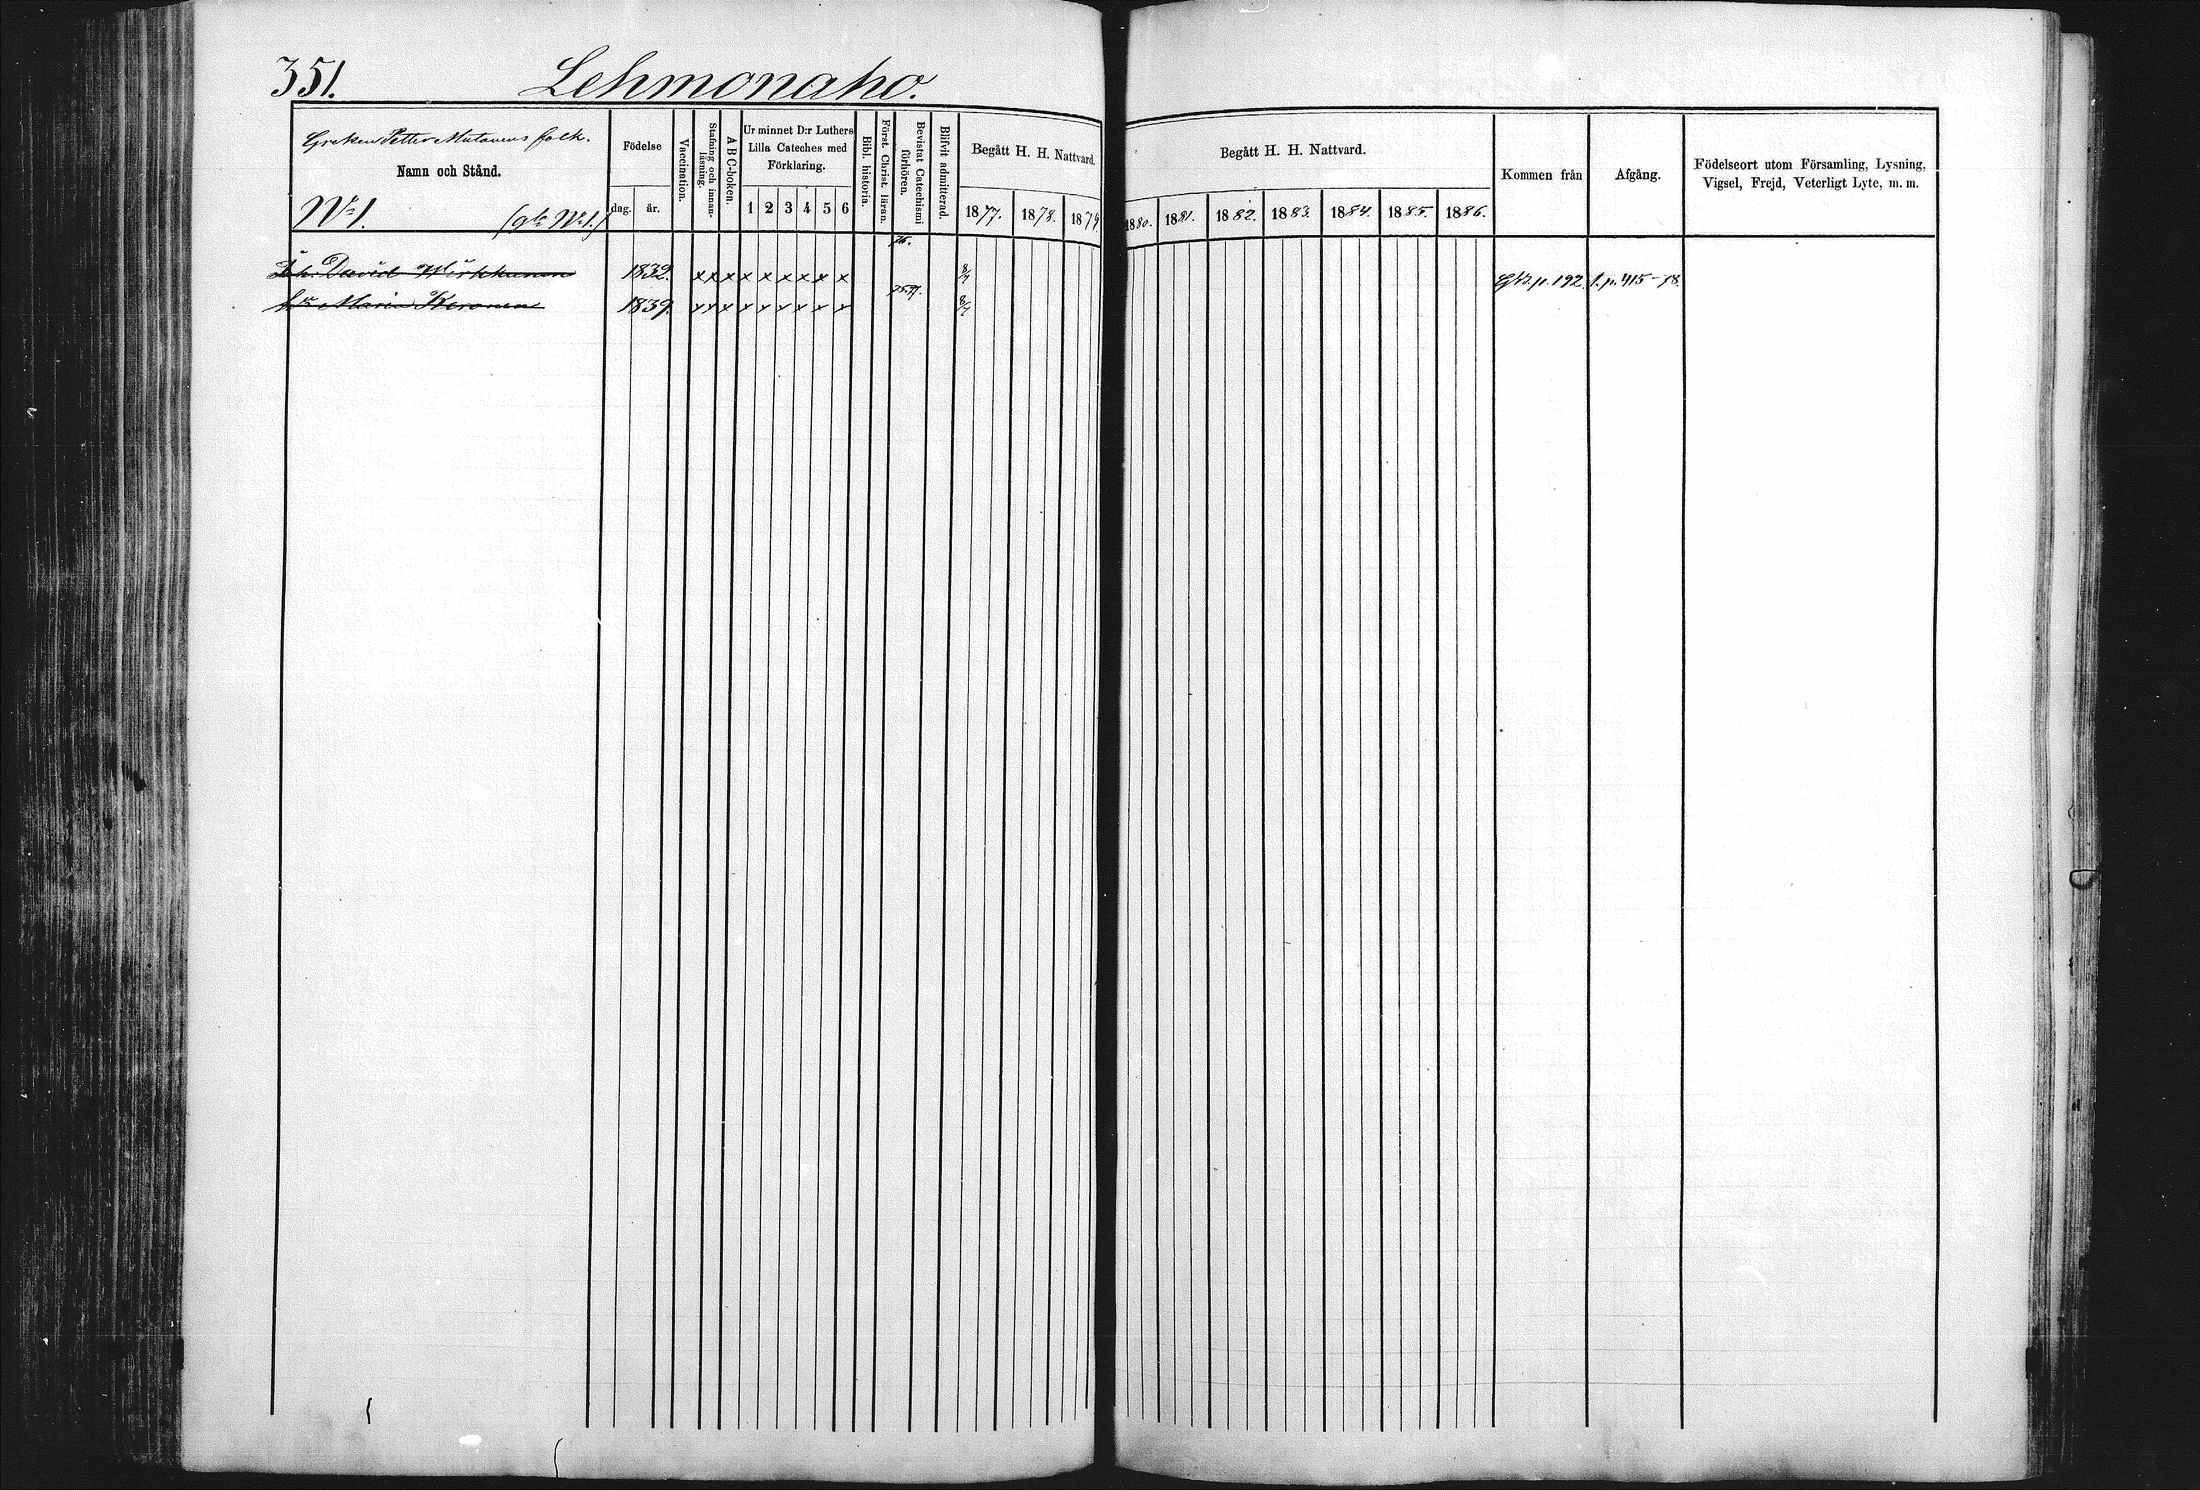 351.
Lehmonaho.
Greken Petter Mutanens folk.
Namn och Stånd.
N:o 1. (gla N:o 1.)
Födelse
dag. år.
Vaccination.
Stafning och innanläsning.
A B C-boken.
Ur minnet D:r Luthers
Lilla Cateches med
Förklaring.
1 2 3 4 5 6
Bibl. historia.
Först. Christ. läran.
Bevistat Catechismi
förhören.
Blifvit admitterad.
Begått H. H. Nattvard.
1877. 1878. 1879
Begått H. H. Nattvard.
1880. 1881. 1882. 1883. 1884. 1885. 1886.
Kommen från
Afgång.
Födelseort utom Församling, Lysning,
Vigsel, Frejd, Veterligt Lyte, m. m.
76.
David 1832. x x x x x x x x x 8/7 Gkb. p. 192. 1. p. 415-78.
75.77.
Maria Keronen 1839. x x x x x x x x x 8/7